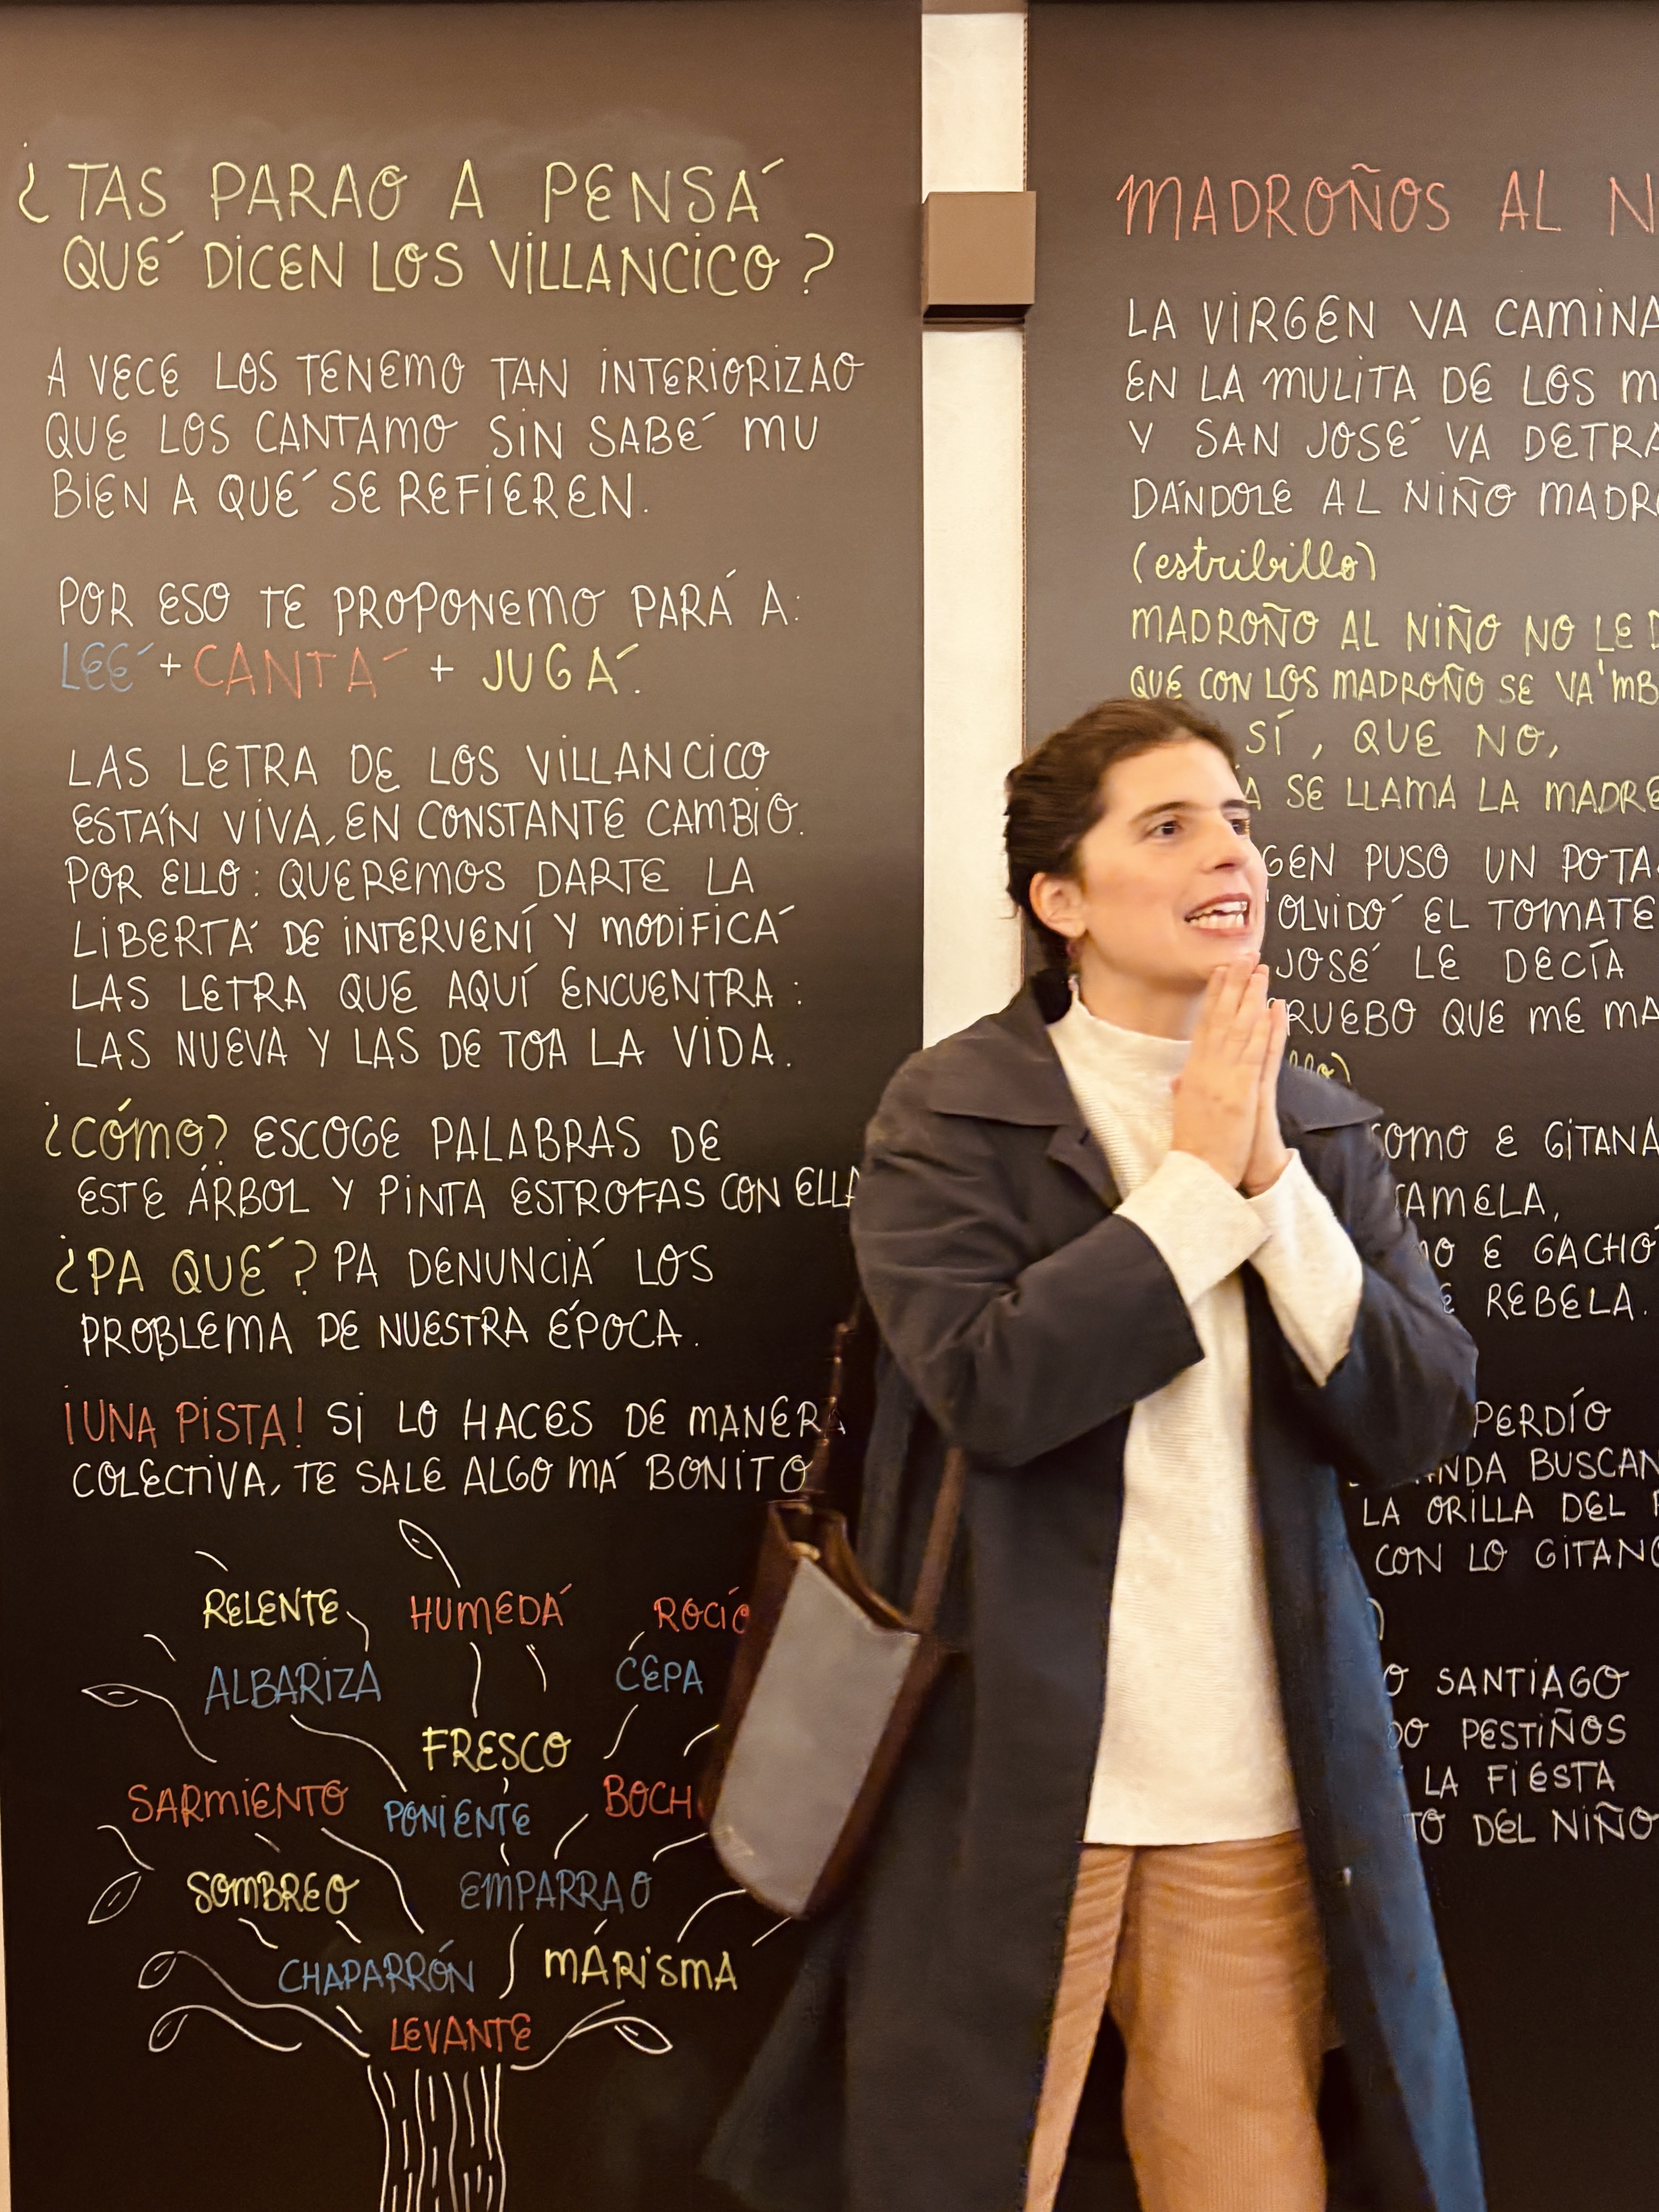 ¿TAS PARAO A PENSÁ
QUÉ DICEN LOS VILLANCICO?
A VECE LOS TENEMO TAN INTERIORIZAO
QUE LOS CANTAMO SIN SABÉ MU
BIEN A QUÉ SE REFIEREN.
POR ESO TE PROPONEMO PARÁ A:
LEÉ + CANTÁ + JUGÁ.
LAS LETRA DE LOS VILLANCICO
ESTÁN VIVA, EN CONSTANTE CAMBIO.
POR ELLO: QUEREMOS DARTE LA
LIBERTÁ DE INTERVENÍ Y MODIFICÁ
LAS LETRA QUE AQUÍ ENCUENTRA:
LAS NUEVA Y LAS DE TOA LA VIDA.
¿CÓMO? ESCOGE PALABRAS DE
ESTE ÁRBOL Y PINTA ESTROFAS CON ELLA
¿PA QUÉ? PA DENUNCIÁ LOS
PROBLEMA DE NUESTRA ÉPOCA.
¡UNA PISTA! SI LO HACES DE MANERA
COLECTIVA, TE SALE ALGO MÁ BONITO
RELENTE HUMEDÁ ROCÍO
ALBARIZA CEPA
FRESCO
SARMIENTO PONIENTE BOCH
SOMBREO EMPARRAO
CHAPARRÓN MARISMA
LEVANTE
MADROÑOS AL N
LA VIRGEN VA CAMINA
EN LA MULITA DE LOS M
Y SAN JOSÉ VA DETRA
DÁNDOLE AL NIÑO MADR
(estribillo)
MADROÑO AL NIÑO NO LE D
QUE CON LOS MADROÑO SE VA 'MB
SÍ, QUE NO,
A SE LLAMA LA MADRE
GEN PUSO UN POTA
OLVIDÓ EL TOMATE
JOSÉ LE DECÍA
RUEBO QUE ME MA
llo)
COMO E GITANA
AMELA,
NO E GACHÓ
E REBELA.
PERDÍO
NDA BUSCAN
LA ORILLA DEL
CON LO GITANO
)
O SANTIAGO
DO PESTIÑOS
LA FIESTA
TO DEL NIÑO